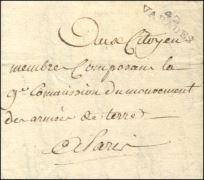 42
Aux Citoyen
membre Composant la
9e Commission du mouvement
des armées de terre
a Paris